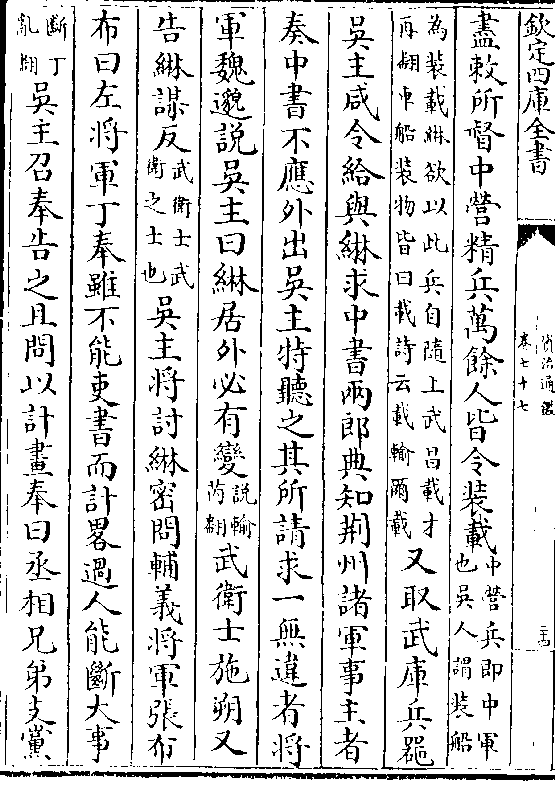 欽定四庫全書
資治通鑑
卷七十七
盡敕所督中營精兵萬餘人皆令裝載中營兵即中軍也吳人謂裝船
為裝載綝欲以此兵自隨上武昌載才再翻凡船裝物皆曰載詩云載輸爾載又取武庫兵器
吳主咸令給與綝求中書兩郎典知荆州諸軍事主者
奏中書不應外出吳主特聽之其所請求一無違者將
軍魏邈說吳主曰綝居外必有變說輸芮翻武衛士施朔又
告綝謀反武衛士武衛之士也吳主將討綝密問輔義將軍張布
布曰左將軍丁奉雖不能吏書而計畧過人能斷大事
斷丁亂翻吳主召奉告之且問以計畫奉曰丞相兄弟支黨